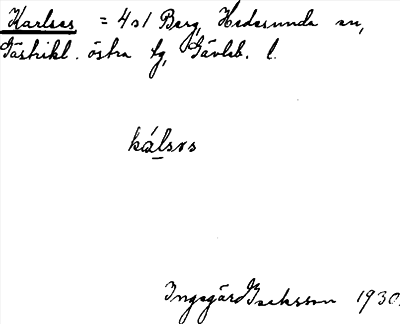 Karlses = 4s1 Berg, Hedesunda sn,
Gästrikl. östra tg, Gävleb. l.
kálsɷs
Ingegärd Isaksson 1930.